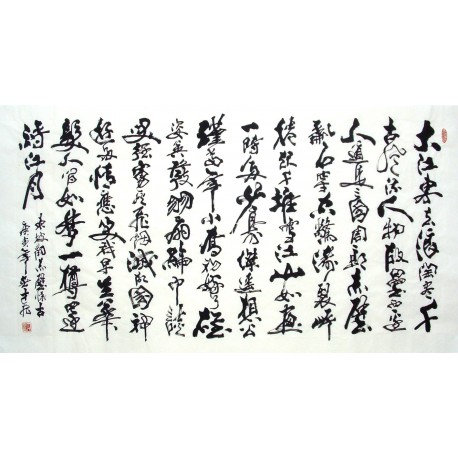 大江东去浪淘尽千
古风流人物故垒西边
人道是三國周郎赤壁
亂石穿空驚濤裂岸
捲起千堆雪江山如畫
一時多少豪傑遙想公
瑾當年小喬初嫁了雄
姿英發羽扇綸巾談
笑強虜灰飛烟滅故國神
遊多情應笑我早生華
髮人間如夢一樽還
酹江月
東坡詞赤壁懷古